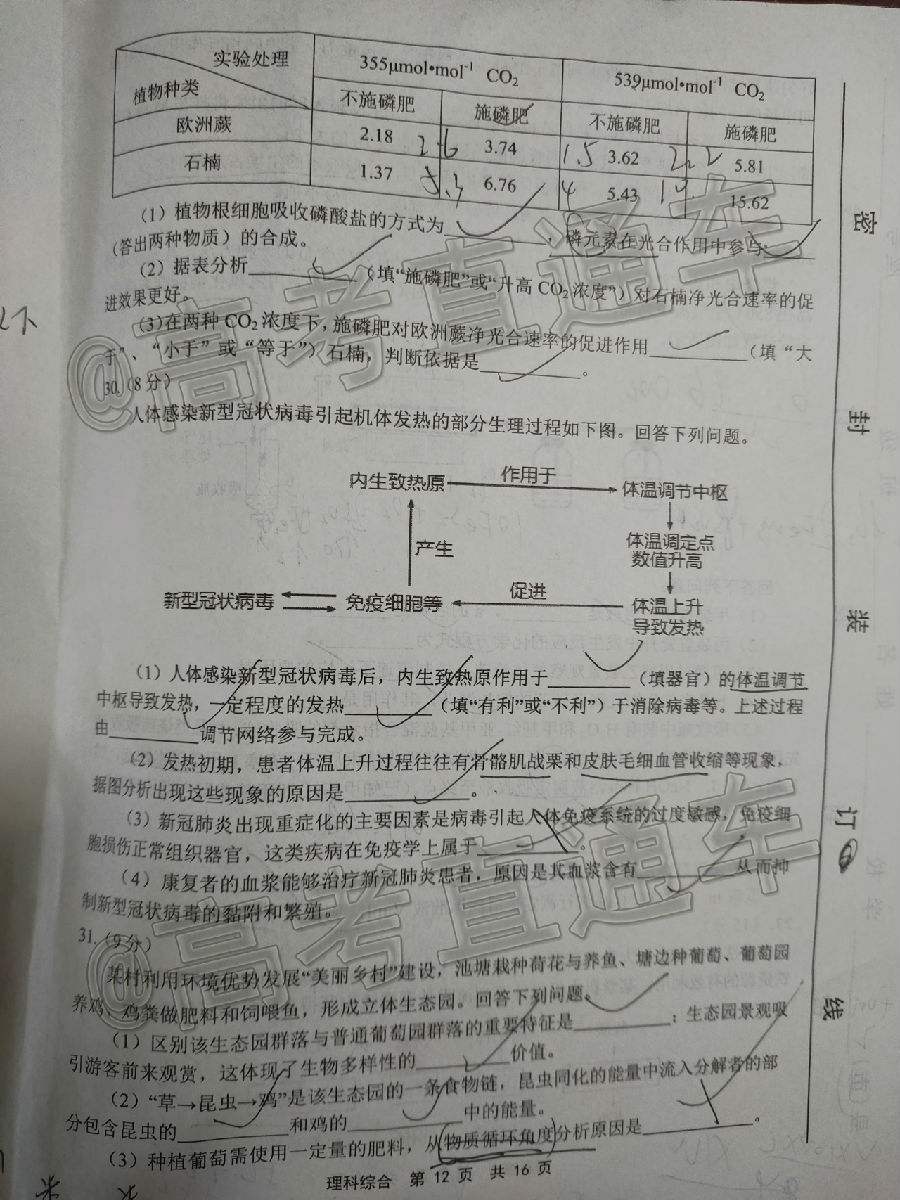 实验处理
植物种类
355μmol•mol⁻¹ CO₂
539μmol•mol⁻¹ CO₂
不施磷肥 施磷肥 不施磷肥 施磷肥
欧洲蕨 2.18 3.74 3.62 5.81
石楠 1.37 6.76 5.43 15.62
(1)植物根细胞吸收磷酸盐的方式为__________,磷元素在光合作用中参与__________
(答出两种物质)的合成。
(2)据表分析__________(填“施磷肥”或“升高CO₂浓度”)对石楠净光合速率的促
进效果更好。
(3)在两种CO₂浓度下,施磷肥对欧洲蕨净光合速率的促进作用__________(填“大
于”、“小于”或“等于”)石楠,判断依据是__________。
30.(8分)
人体感染新型冠状病毒引起机体发热的部分生理过程如下图。回答下列问题。
内生致热原 作用于 体温调节中枢
产生
体温调定点
数值升高
新型冠状病毒 免疫细胞等 促进 体温上升
导致发热
(1)人体感染新型冠状病毒后,内生致热原作用于__________(填器官)的体温调节
中枢导致发热,一定程度的发热__________(填“有利”或“不利”)于消除病毒等。上述过程
由__________调节网络参与完成。
(2)发热初期,患者体温上升过程往往有骨骼肌战栗和皮肤毛细血管收缩等现象,
据图分析出现这些现象的原因是__________。
(3)新冠肺炎出现重症化的主要因素是病毒引起人体免疫系统的过度敏感,免疫细
胞损伤正常组织器官,这类疾病在免疫学上属于__________。
(4)康复者的血浆能够治疗新冠肺炎患者,原因是其血浆含有__________从而抑
制新型冠状病毒的黏附和繁殖。
31.(9分)
某村利用环境优势发展“美丽乡村”建设,池塘栽种荷花与养鱼、塘边种葡萄、葡萄园
养鸡、鸡粪做肥料和饲喂鱼,形成立体生态园。回答下列问题。
(1)区别该生态园群落与普通葡萄园群落的重要特征是__________;生态园景观吸
引游客前来观赏,这体现了生物多样性的__________价值。
(2)“草→昆虫→鸡”是该生态园的一条食物链,昆虫同化的能量中流入分解者的部
分包含昆虫的__________和鸡的__________中的能量。
(3)种植葡萄需使用一定量的肥料,从物质循环角度分析原因是__________。
理科综合 第12页 共16页
密
封
装
订
线
@高考直通车
@高考直通车